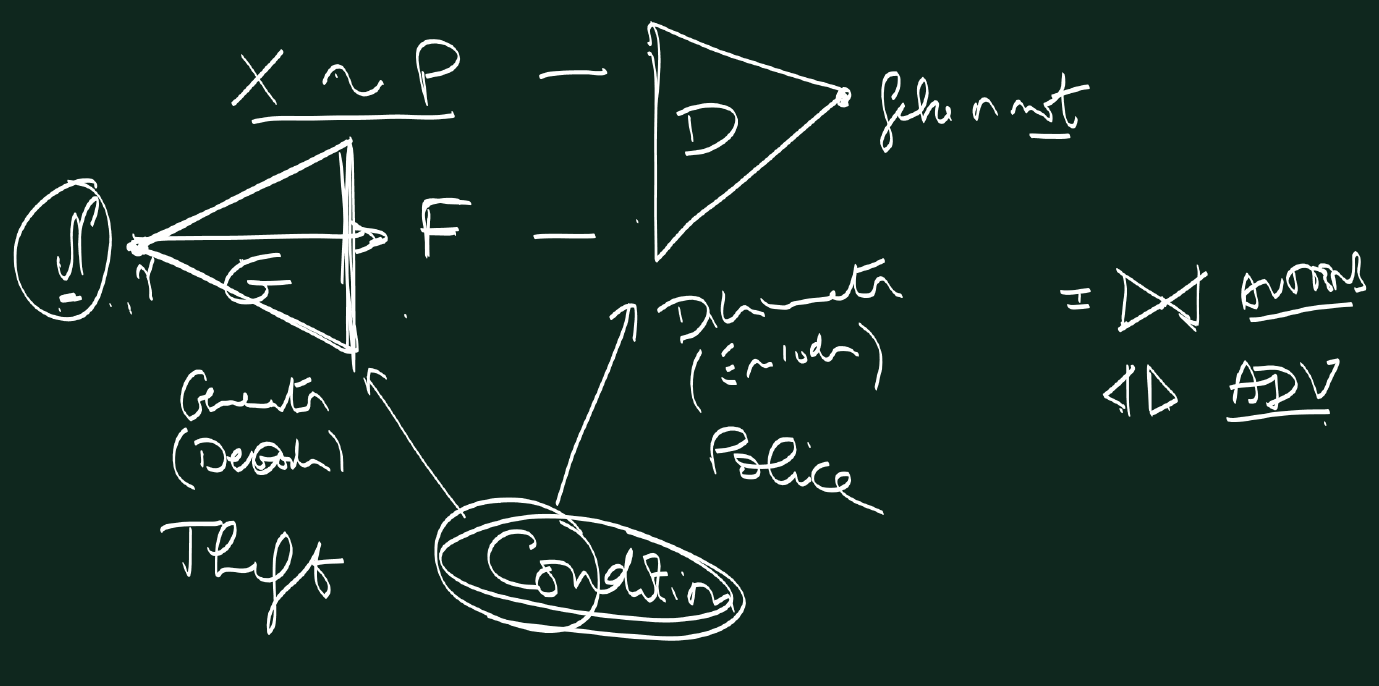 X ~ P
D
fake or not
N
G
F
Generator
(Decoder)
Theft
Discriminator
(Encoder)
Police
Condition
= AUTOENS
ADV